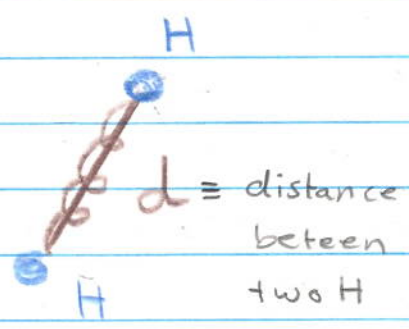 H
d ≡ distance
beteen
two H
H